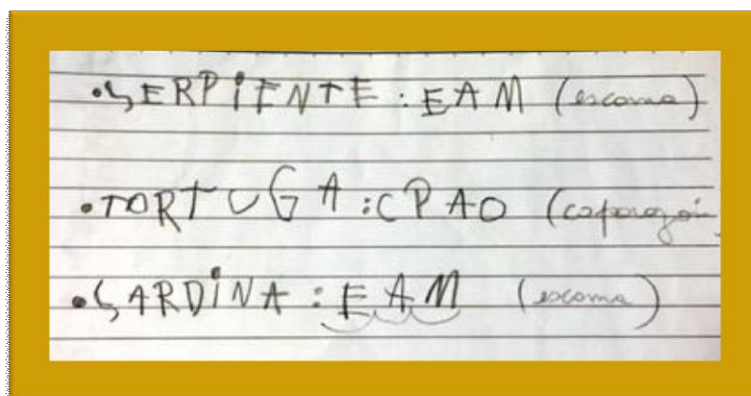 •SERPiENTE : EAM (escama)
•TORTUGA : CPAO (caparazón
•SARDiNA : EAM (escama)